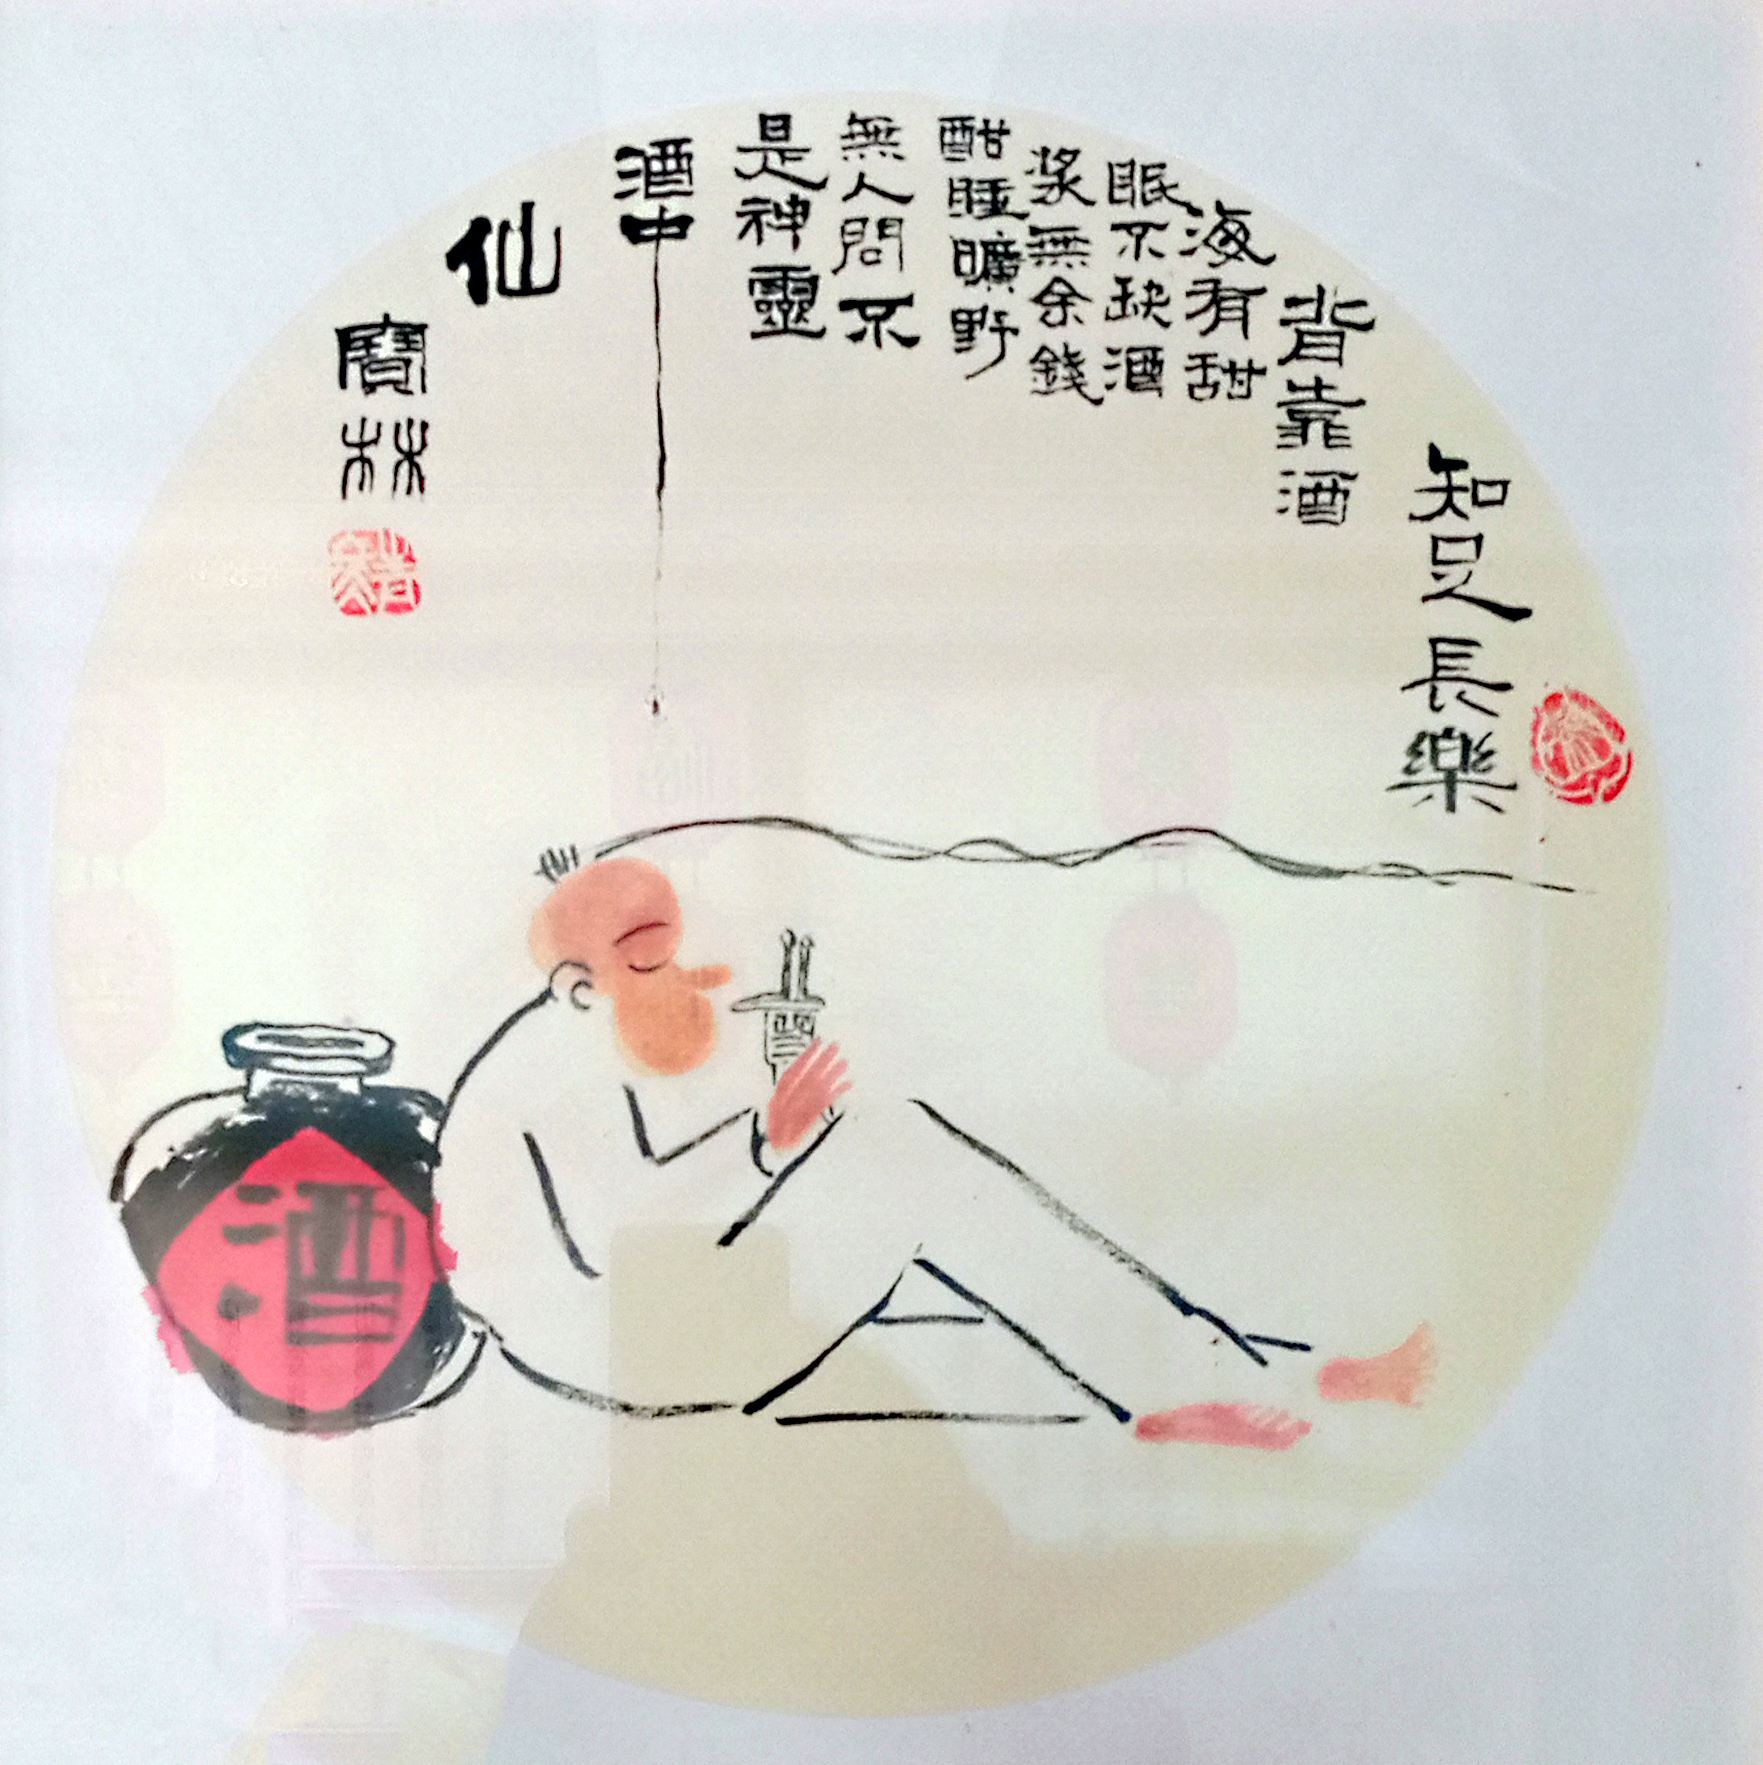 知足長樂
背靠酒
海有甜
眠不缺酒
浆無余錢
酣睡曠野
無人問不
是神靈
酒中
仙
寶林
酒